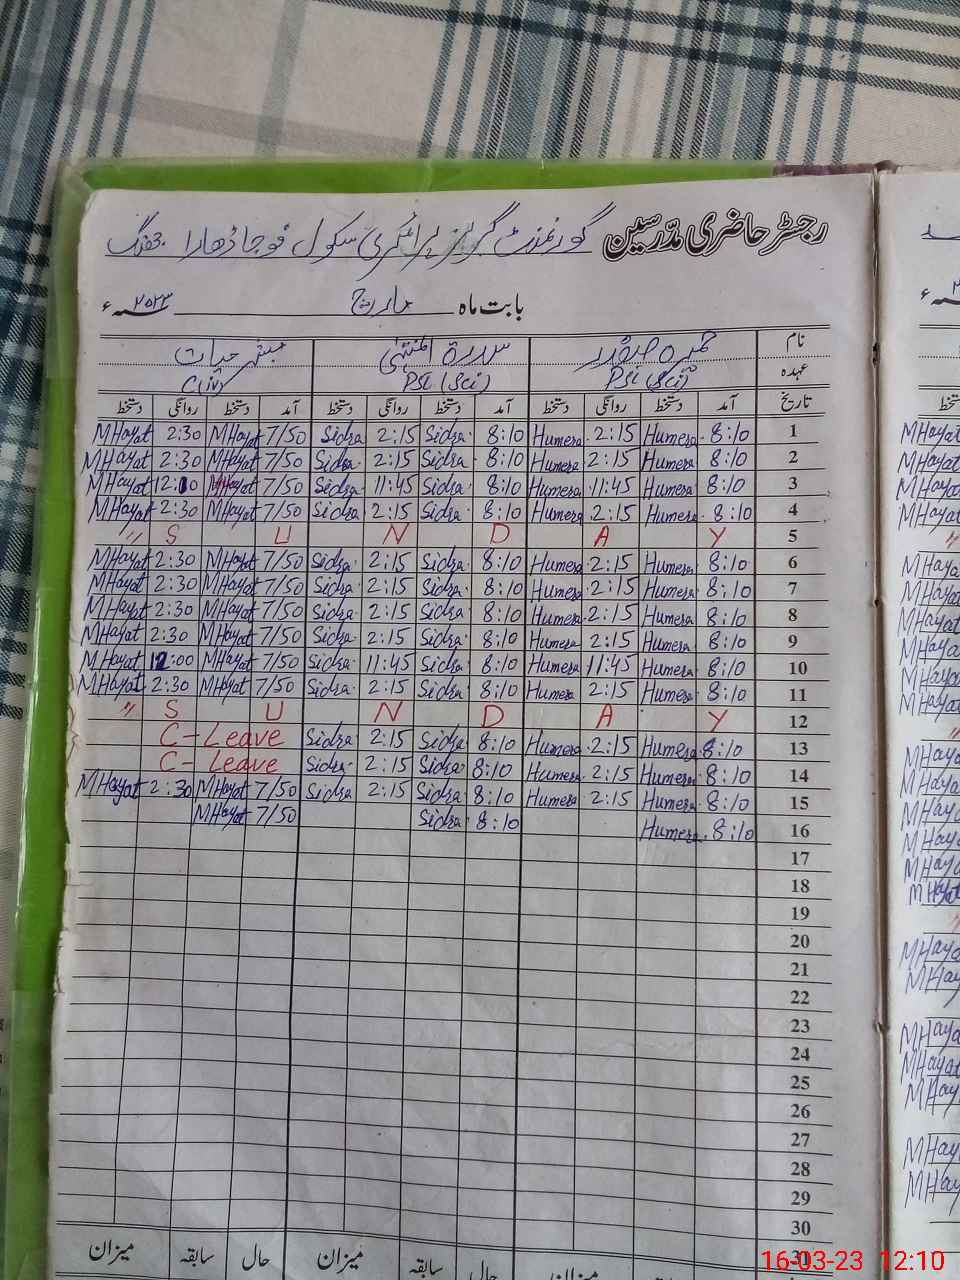 رجسٹر حاضری مدّرسین گورنمنٹ گرلز پرائمری سکول
بابت ماہ مارچ ۲۰۲۳ء
نام حمیرہ صفدر سدرۃ المنتہیٰ حیات
عہدہ PSt (Sci) PSt (Sci) C(iv)
تاریخ آمد دستخط روانگی دستخط آمد دستخط روانگی دستخط آمد دستخط روانگی دستخط
MHayat 2:30 MHayat 7/50 Sidra 2:15 Sidra 8:10 Humera 2:15 Humera 8:10 1
MHayat 2:30 MHayat 7/50 Sidra 2:15 Sidra 8:10 Humera 2:15 Humera 8:10 2
MHayat 12:00 MHayat 7/50 Sidra 11:45 Sidra 8:10 Humera 11:45 Humera 8:10 3
MHayat 2:30 MHayat 7/50 Sidra 2:15 Sidra 8:10 Humera 2:15 Humera 8:10 4
" S U N D A Y 5
MHayat 2:30 MHayat 7/50 Sidra 2:15 Sidra 8:10 Humera 2:15 Humera 8:10 6
MHayat 2:30 MHayat 7/50 Sidra 2:15 Sidra 8:10 Humera 2:15 Humera 8:10 7
MHayat 2:30 MHayat 7/50 Sidra 2:15 Sidra 8:10 Humera 2:15 Humera 8:10 8
MHayat 2:30 MHayat 7/50 Sidra 2:15 Sidra 8:10 Humera 2:15 Humera 8:10 9
MHayat 12:00 MHayat 7/50 Sidra 11:45 Sidra 8:10 Humera 11:45 Humera 8:10 10
MHayat 2:30 MHayat 7/50 Sidra 2:15 Sidra 8:10 Humera 2:15 Humera 8:10 11
" S U N D A Y 12
C-Leave Sidra 2:15 Sidra 8:10 Humera 2:15 Humera 8:10 13
C-Leave Sidra 2:15 Sidra 8:10 Humera 2:15 Humera 8:10 14
MHayat 2:30 MHayat 7/50 Sidra 2:15 Sidra 8:10 Humera 2:15 Humera 8:10 15
MHayat 7/50 Sidra 8:10 Humera 8:10 16
17
18
19
20
21
22
23
24
25
26
27
28
29
30
31
حال سابقہ میزان حال سابقہ میزان
16-03-23 12:10